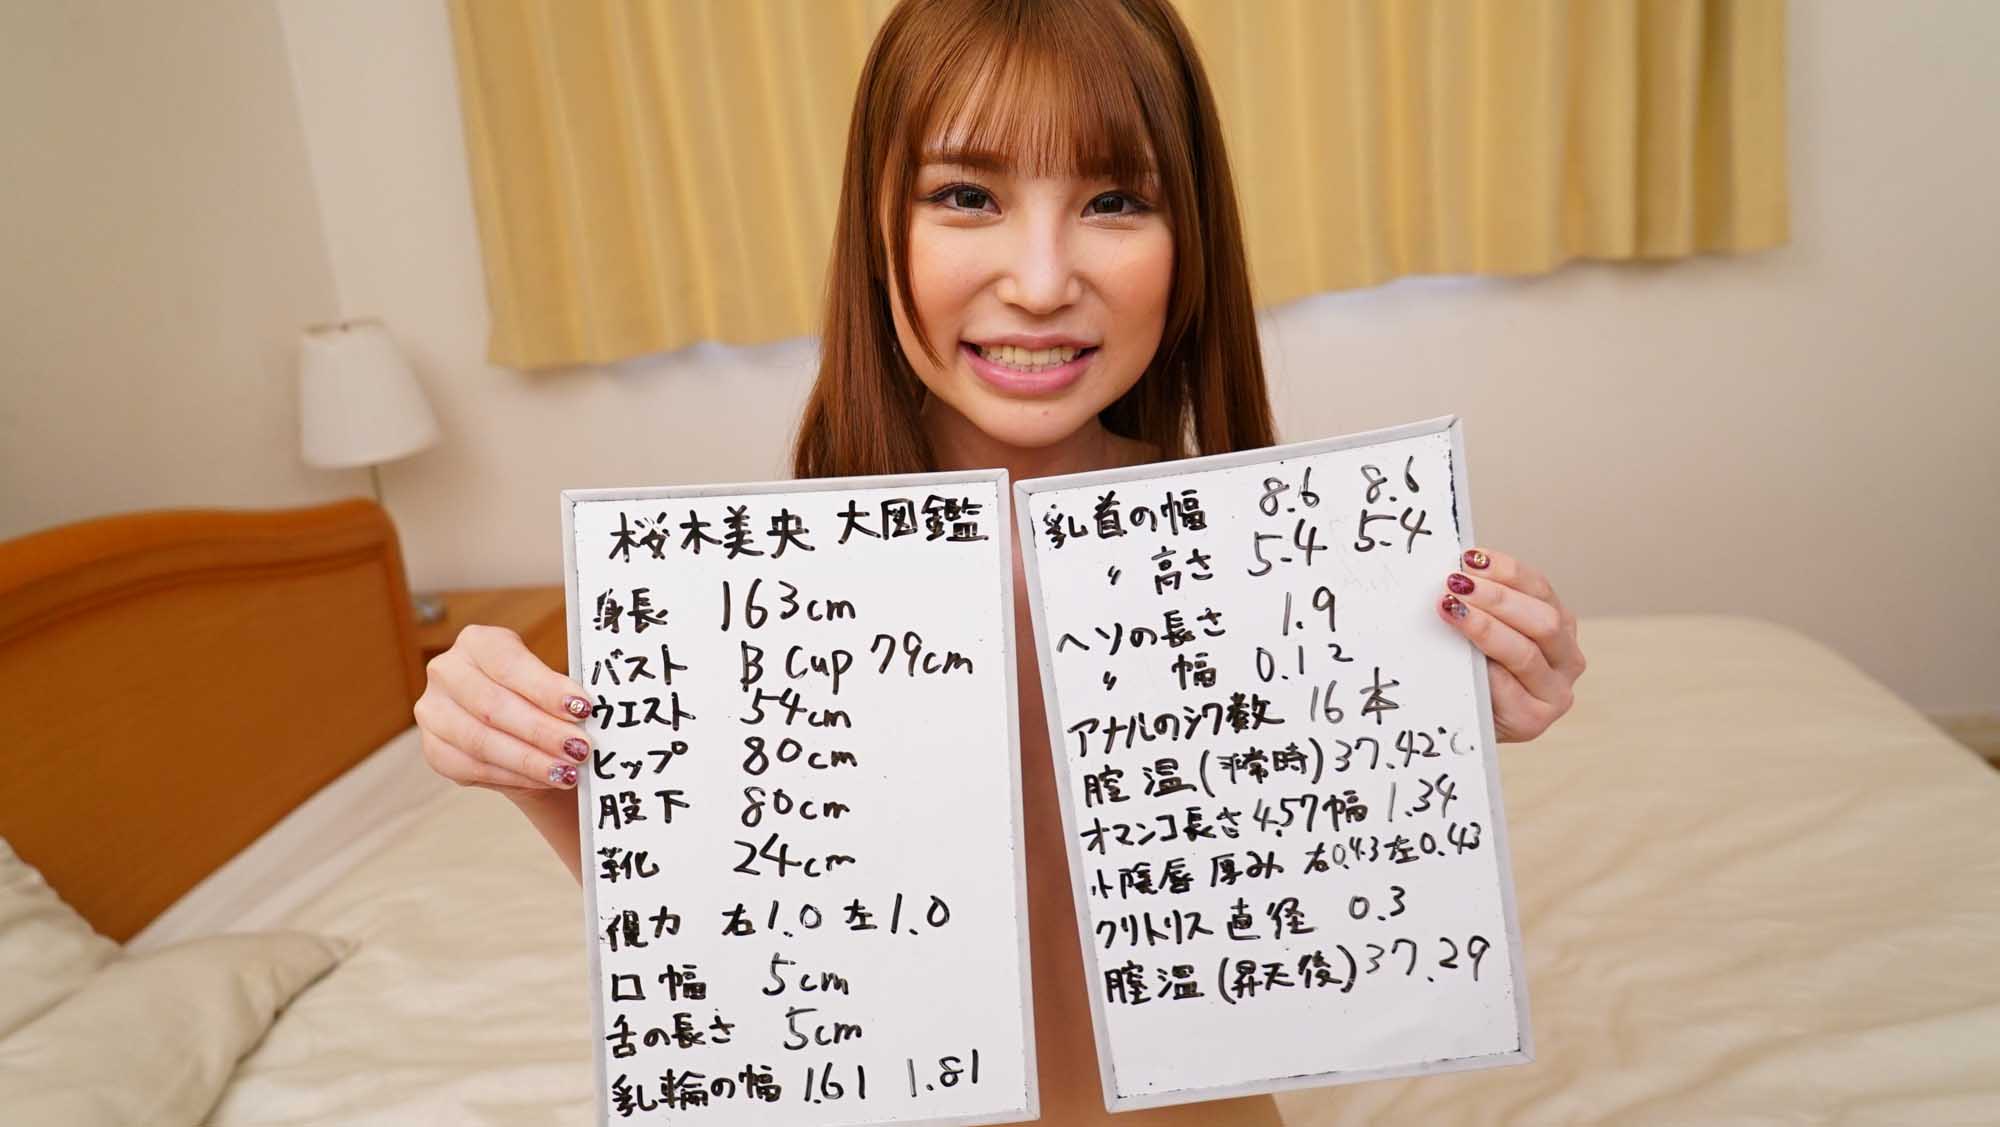 桜木美央 大図鑑
身長 163cm
バスト B Cup 79cm
ウエスト 54cm
ヒップ 80cm
股下 80cm
靴 24cm
視力 右1.0 左1.0
口幅 5cm
舌の長さ 5cm
乳輪の幅 1.61 1.81
乳首の幅 8.6 8.6
〃 高さ 5.4 5.4
ヘソの長さ 1.9
〃 幅 0.12
アナルのシワ数 16本
膣温(非常時)37.42℃
オマンコ長さ4.57幅1.34
小陰唇厚み 右0.43左0.43
クリトリス直径 0.3
膣温(昇天後)37.29